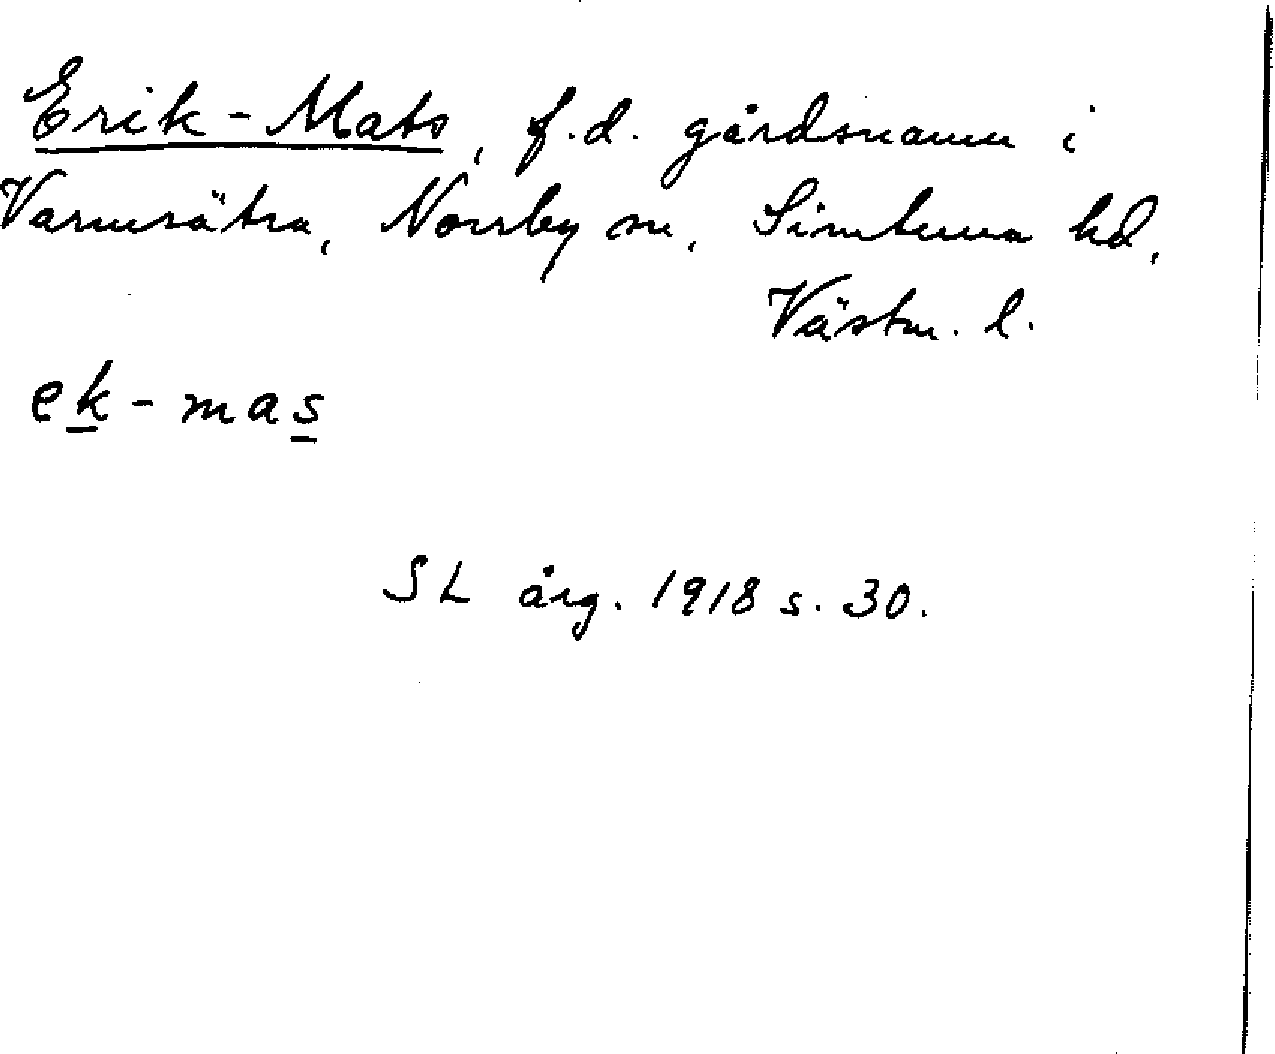 Erik-Mats, f.d. gårdsnamn i
Varmsätra, Norrby sn, Simtuna hd,
Västm. l.
ek-mas
SL årg. 1918 s. 30.